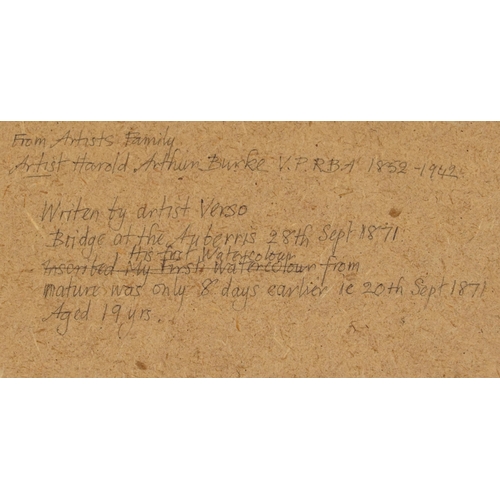 From Artists Family.
Artist Harold Arthur Burke V.P.RBA 1852-1942.
Writen by artist Verso
Bridge at the Auberris 28th Sept 1871
His first Watercolour
Inscribed My First Watercolour from
nature was only 8 days earlier ie 20th Sept 1871
Aged 19 yrs.